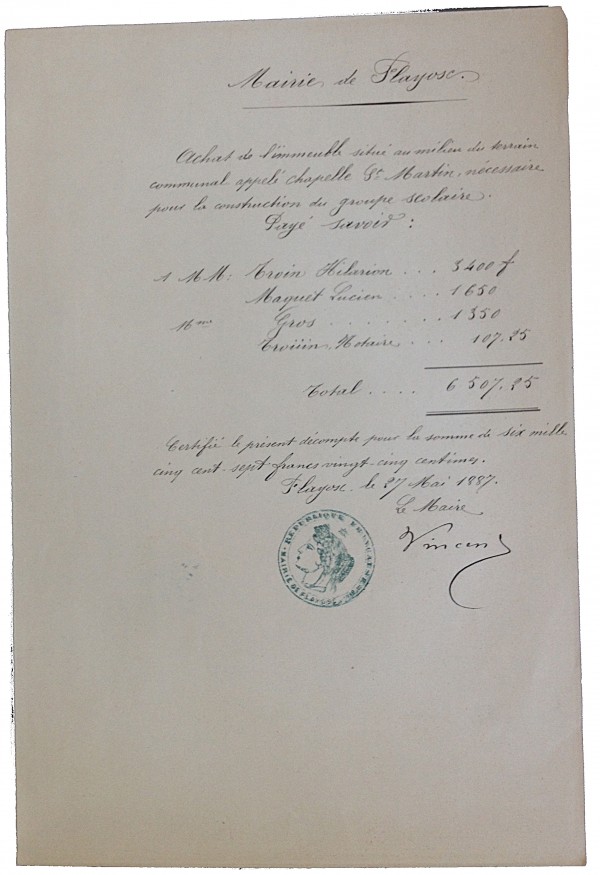 Mairie de Flayosc.
Achat de l'immeuble situé au milieu du terrain
communal appelé chapelle St Martin, nécessaire
pour la construction du groupe scolaire.
Payé savoir :
à MM: Troin Hilarion . . . 3400 f
Maquet Lucien . . . . 1650
Mme Gros . . . . . . . 1350
Troüin, Notaire . . . 107.25
Total . . . . 6507,25
Certifié le présent décompte pour la somme de six mille
cinq cent-sept francs vingt-cinq centimes.
Flayosc, le 27 Mai 1887.
Le Maire
Vincent
RÉPUBLIQUE FRANÇAISE
MAIRIE DE FLAYOSC